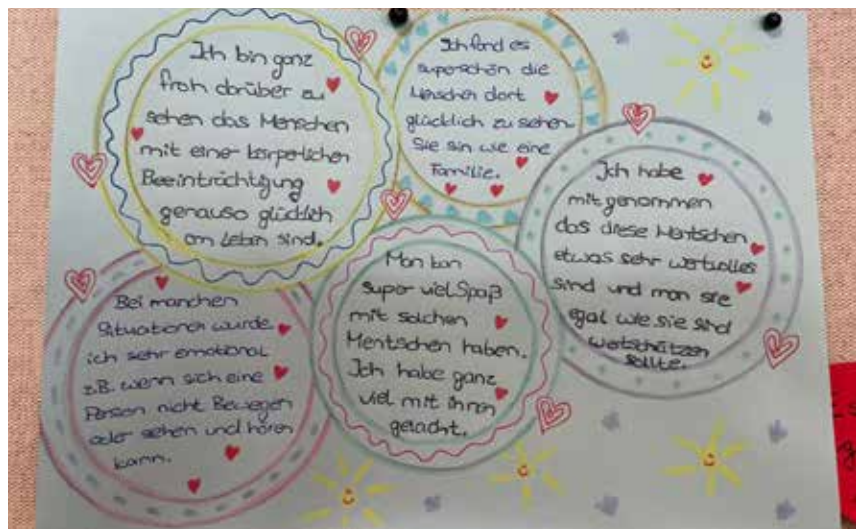 Ich bin ganz
froh darüber zu
sehen das Menschen
mit einer körperlichen
Beeinträchtigung
genauso glücklich
am Leben sind.
Ich fand es
superschön die
Menschen dort
glücklich zu sehen.
Sie sin wie eine
Familie.
Ich habe
mit genommen
das diese Mentschen
etwas sehr wertvolles
sind und man sie
egal wie sie sind
wertschätzen
sollte.
Bei manchen
Situationen wurde
ich sehr emotional
z.B. wenn sich eine
Person nicht Bewegen
oder sehen und hören
kann.
Man kan
super viel Spaß
mit solchen
Mentschen haben.
Ich habe ganz
viel mit ihnen
gelacht.